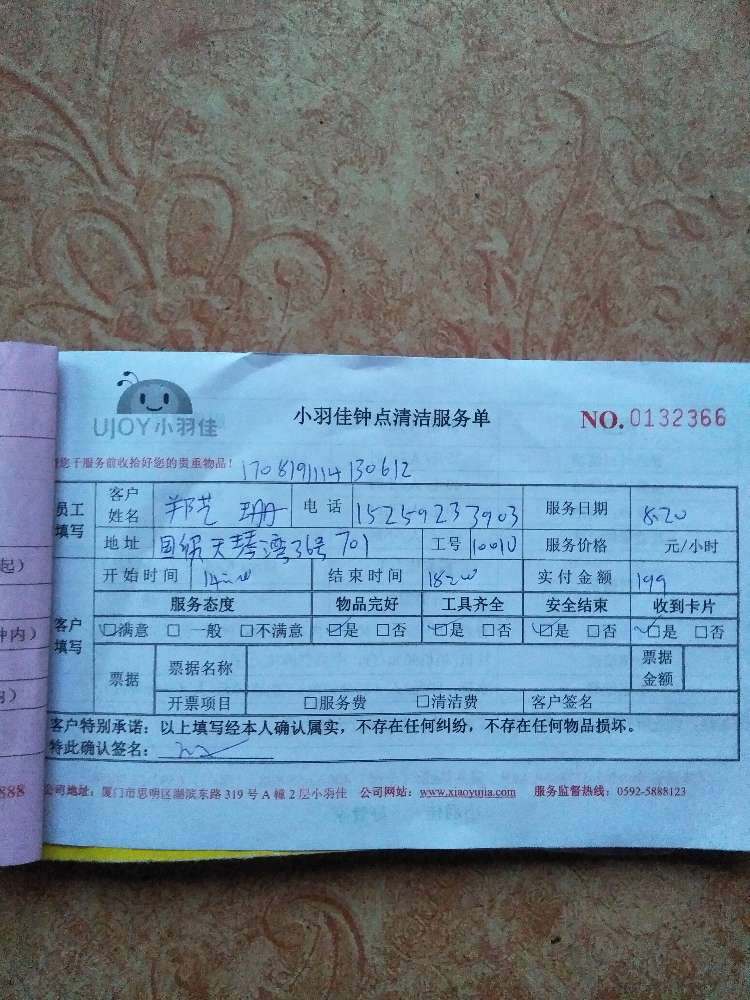 UJOY小羽佳
小羽佳钟点清洁服务单 NO.0132366
您于服务前收拾好您的贵重物品! 1708191114130612
员工填写 客户姓名 郑芝珊 电话 15259233903 服务日期 8.20
地址 国贸天琴湾36号701 工号 10010 服务价格 元/小时
开始时间 14:00 结束时间 18:00 实付金额 199
客户填写 服务态度 物品完好 工具齐全 安全结束 收到卡片
☑满意 □一般 □不满意 ☑是 □否 ☑是 □否 ☑是 □否 ☑是 □否
票据 票据名称 票据金额
开票项目 □服务费 □清洁费 客户签名
客户特别承诺:以上填写经本人确认属实,不存在任何纠纷,不存在任何物品损坏。
特此确认签名:
公司地址:厦门市思明区湖滨东路 319 号 A 幢 2 层小羽佳 公司网站:www.xiaoyujia.com 服务监督热线:0592-5888123
起)
钟内)
888